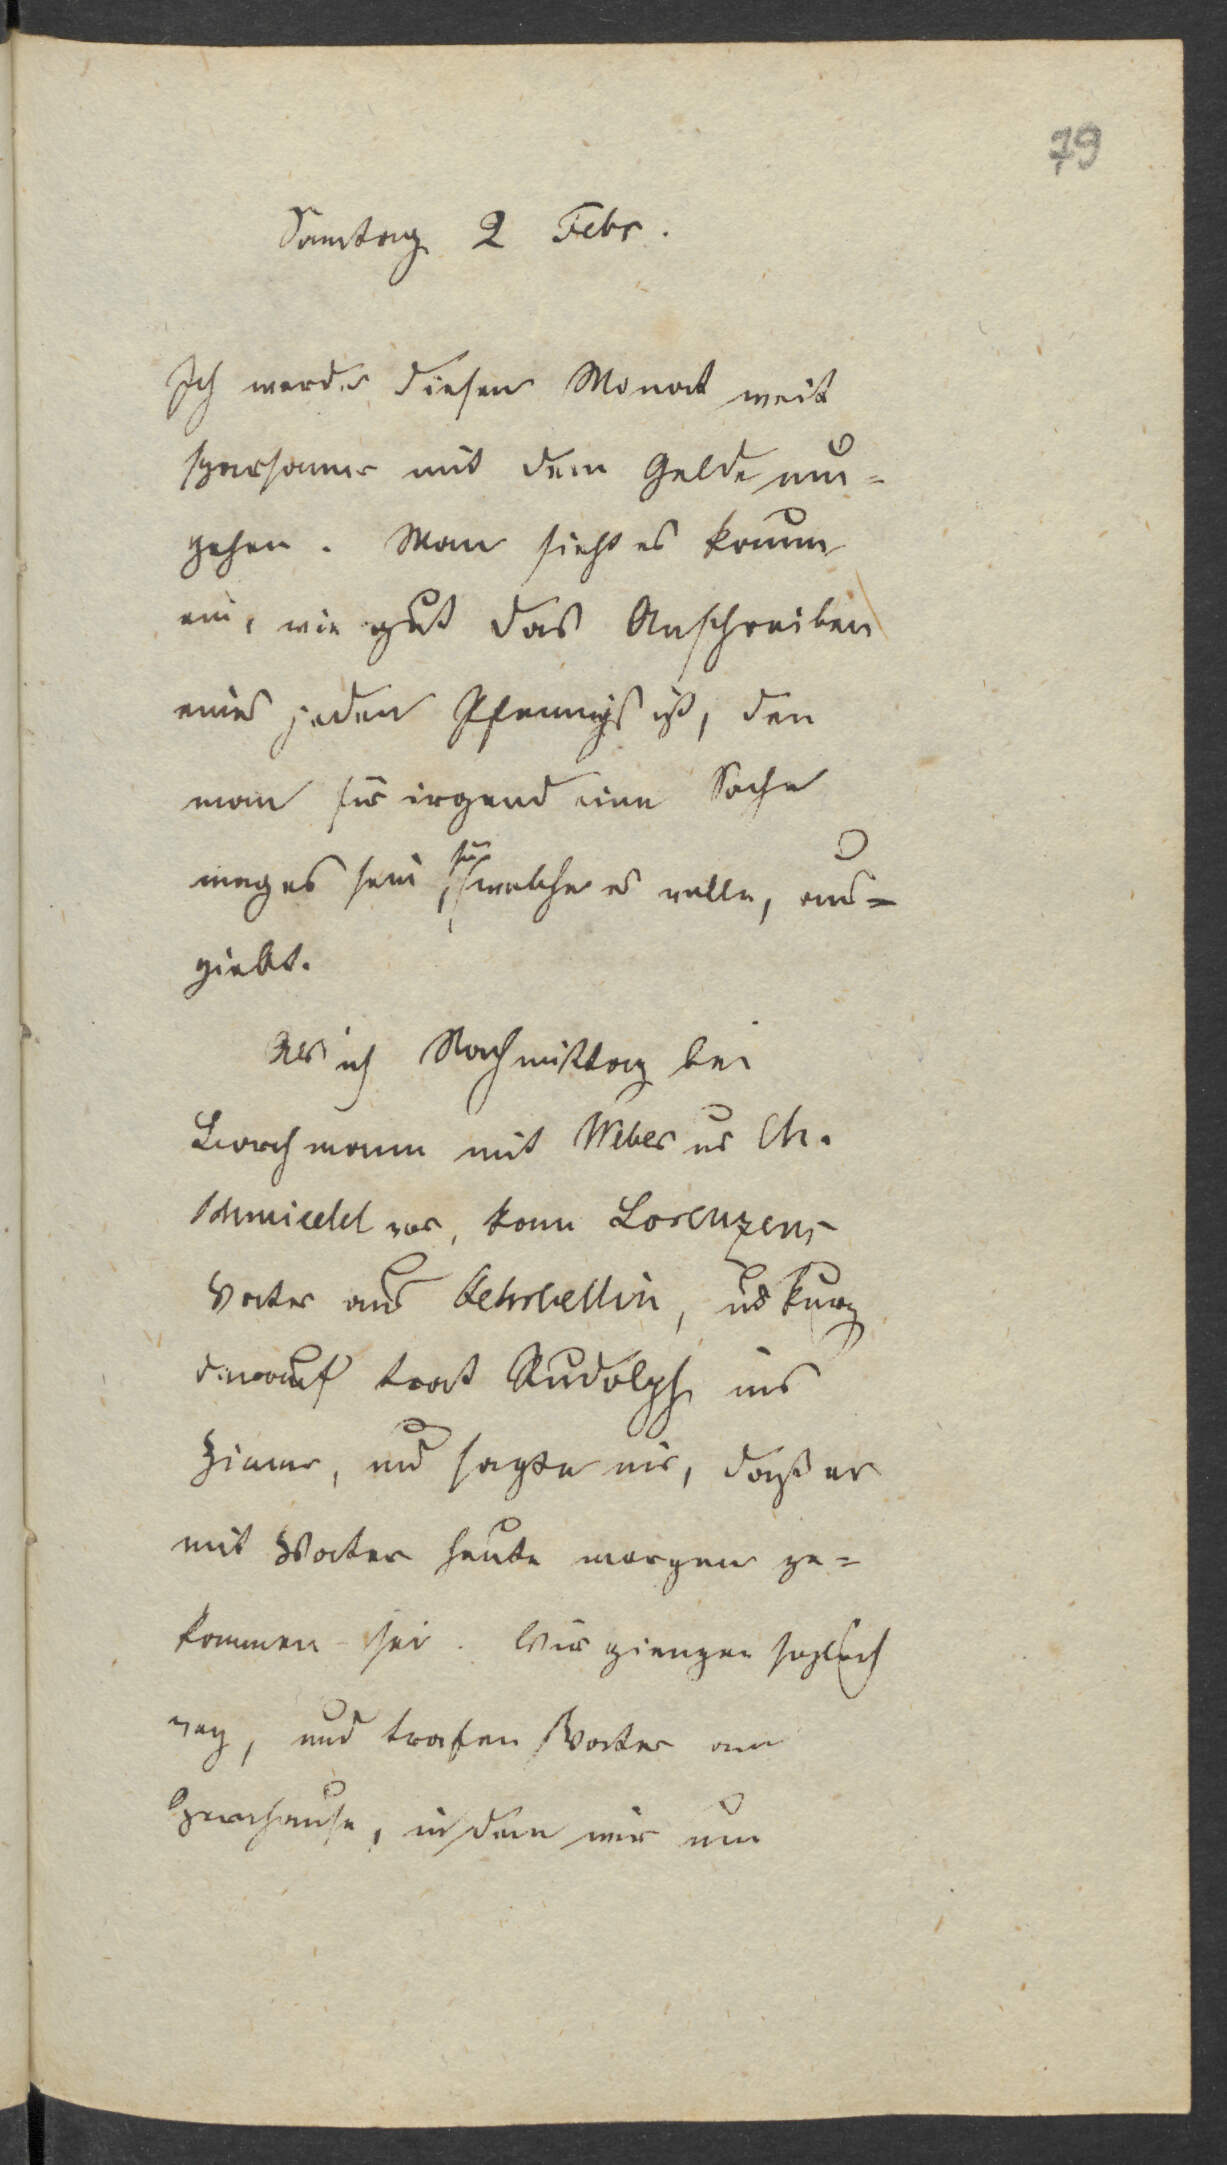 79
Samtag 2 Febr.
Ich werde diesen Monat weit
sparsamer mit dem Gelde um=
gehen. Man sieht es kaum
ein, wie gut das Anschreiben
eines jeden Pfennigs ist, den
man für irgend eine Sache
mag es sein, für welche es wolle, aus=
giebt.
Als ich Nachmittag bei
mit Weber u Ch.
Schmiedel war, kam Lorenzens
Vater aus Fehrbellin, und kurz
darauf trat Rudolph ins
Zimer, und sagte mir, daß er
mit Vater heute morgen ge=
kommen sei. Wir giengen sogleich
weg, und trafen Vater am
Opernhause, in dem wir um